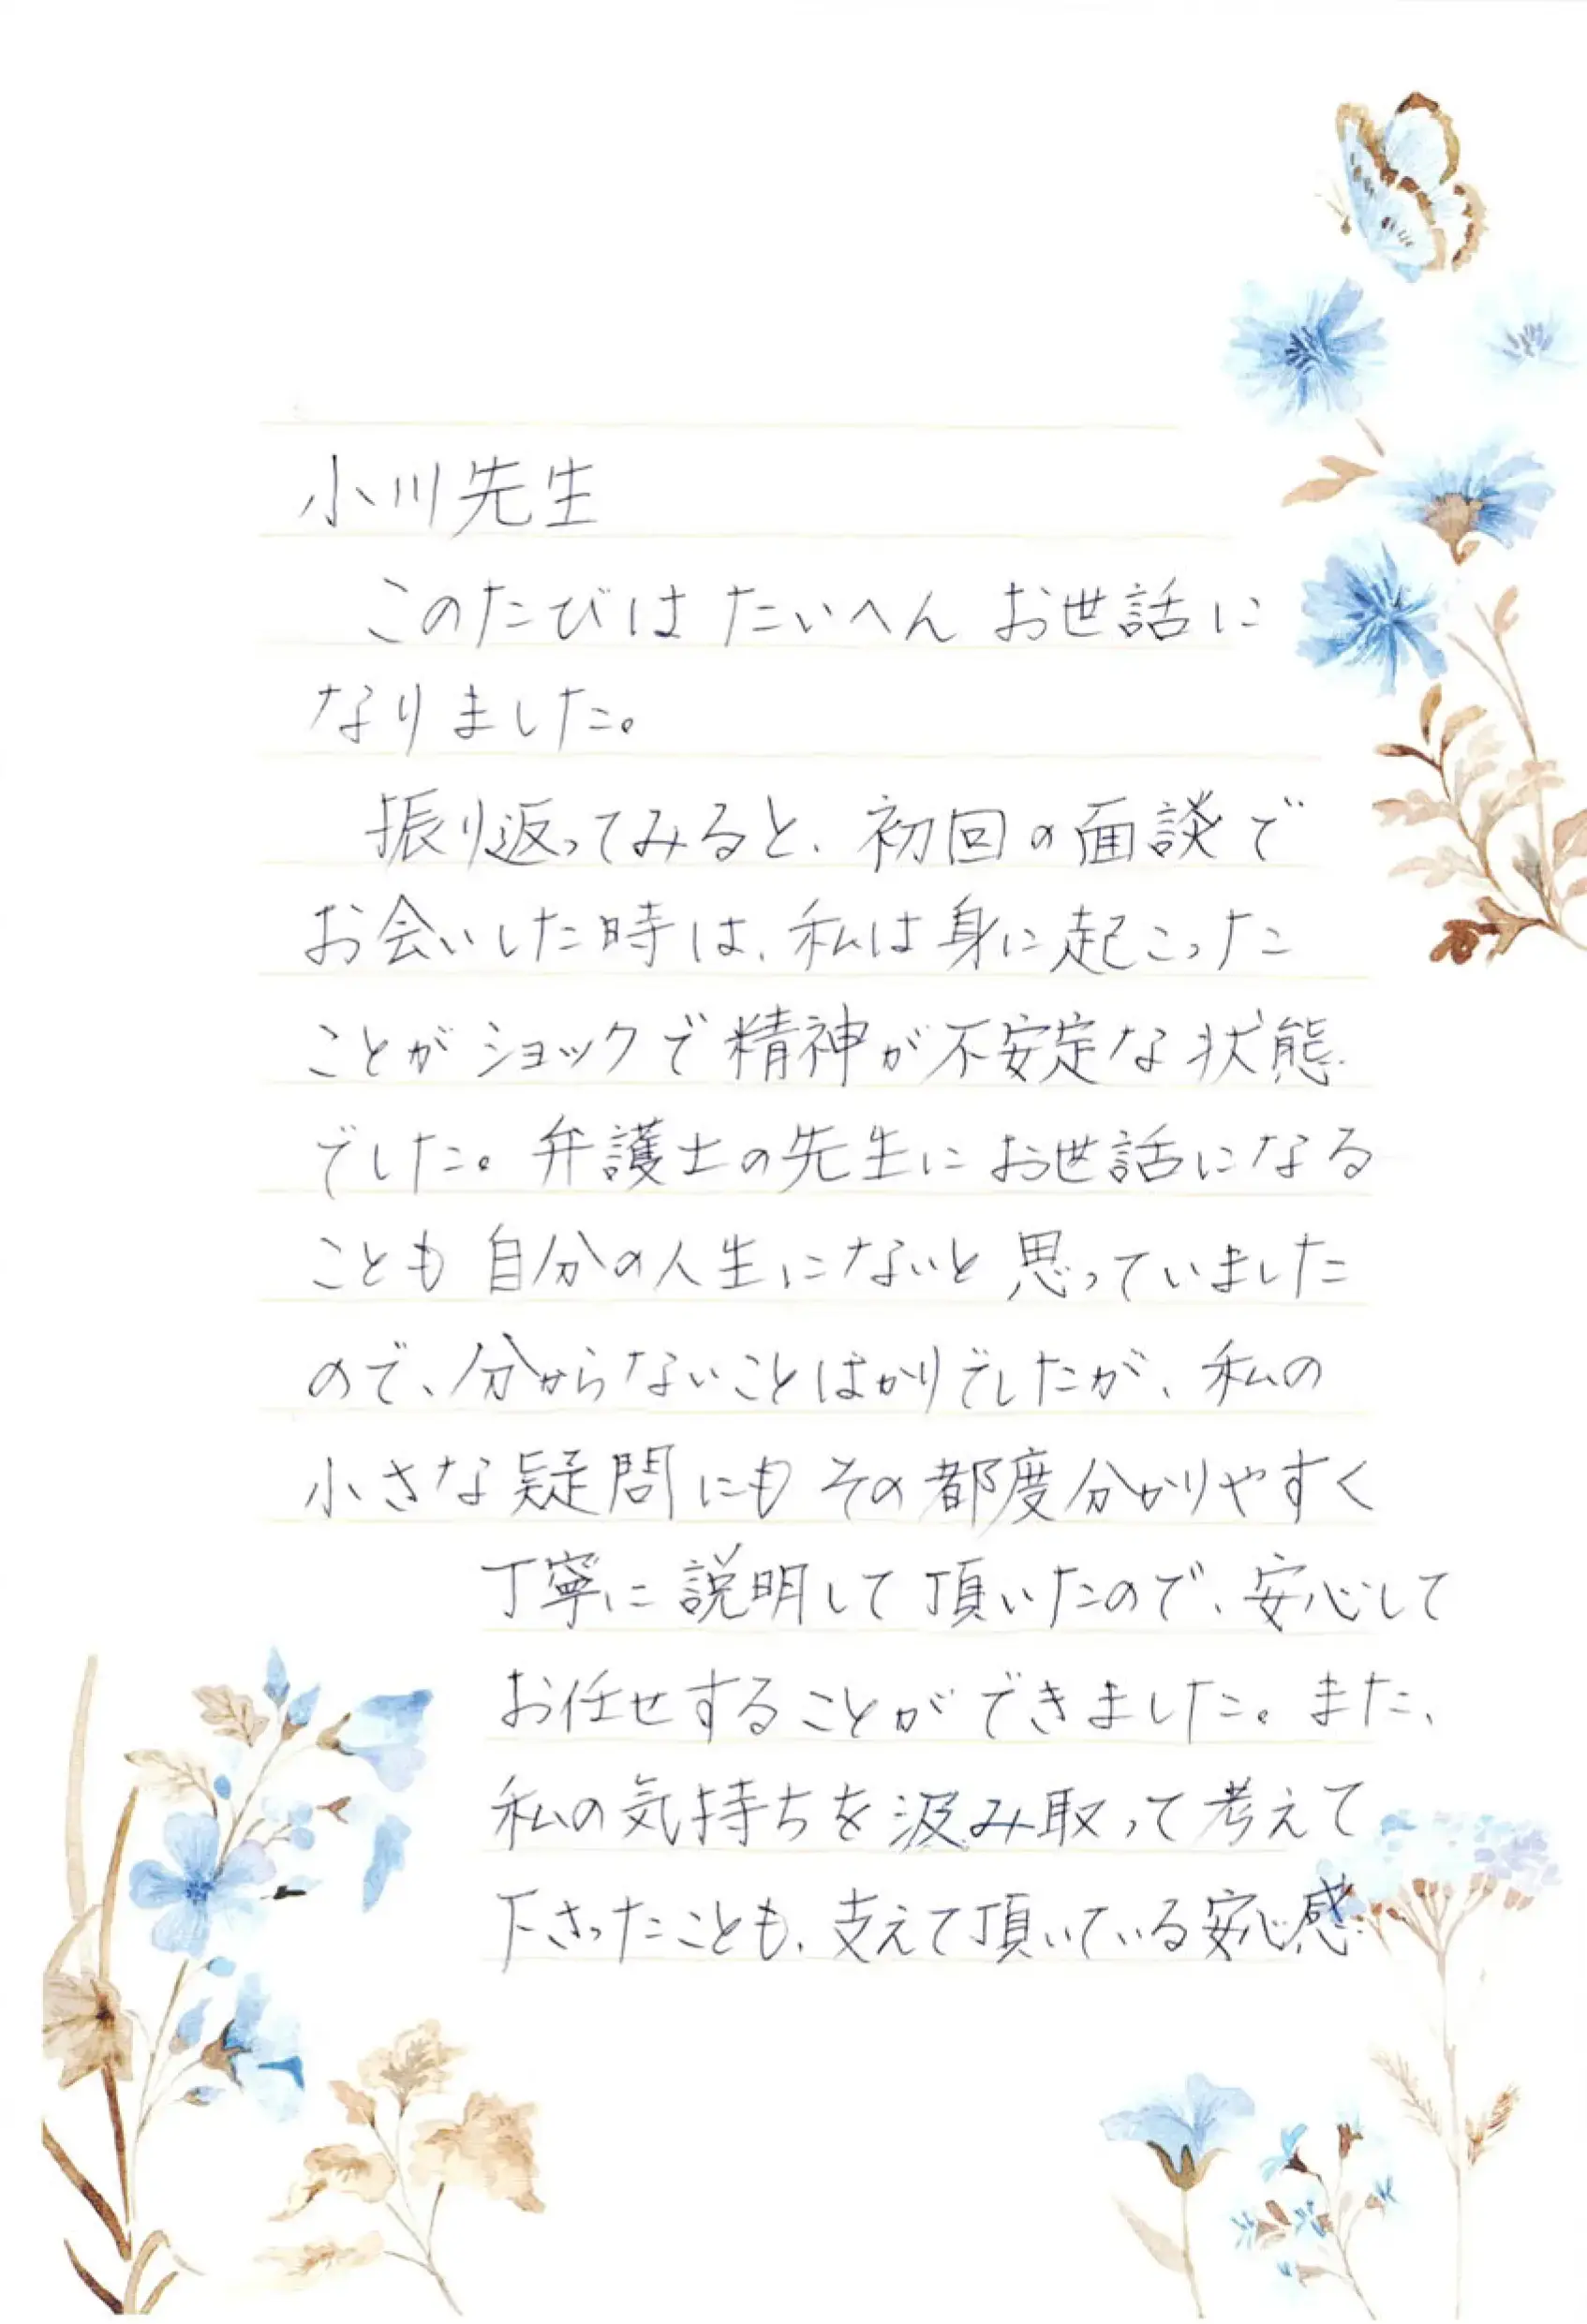 小川先生
このたびは たいへん お世話に
なりました。
振り返ってみると、初回の面談で
お会いした時は、私は身に起こった
ことがショックで精神が不安定な状態
でした。弁護士の先生にお世話になる
ことも自分の人生にないと思っていました
ので、分からないことばかりでしたが、私の
小さな疑問にもその都度分かりやすく
丁寧に説明して頂いたので、安心して
お任せすることができました。また、
私の気持ちを汲み取って考えて
下さったことも、支えて頂いている安心感